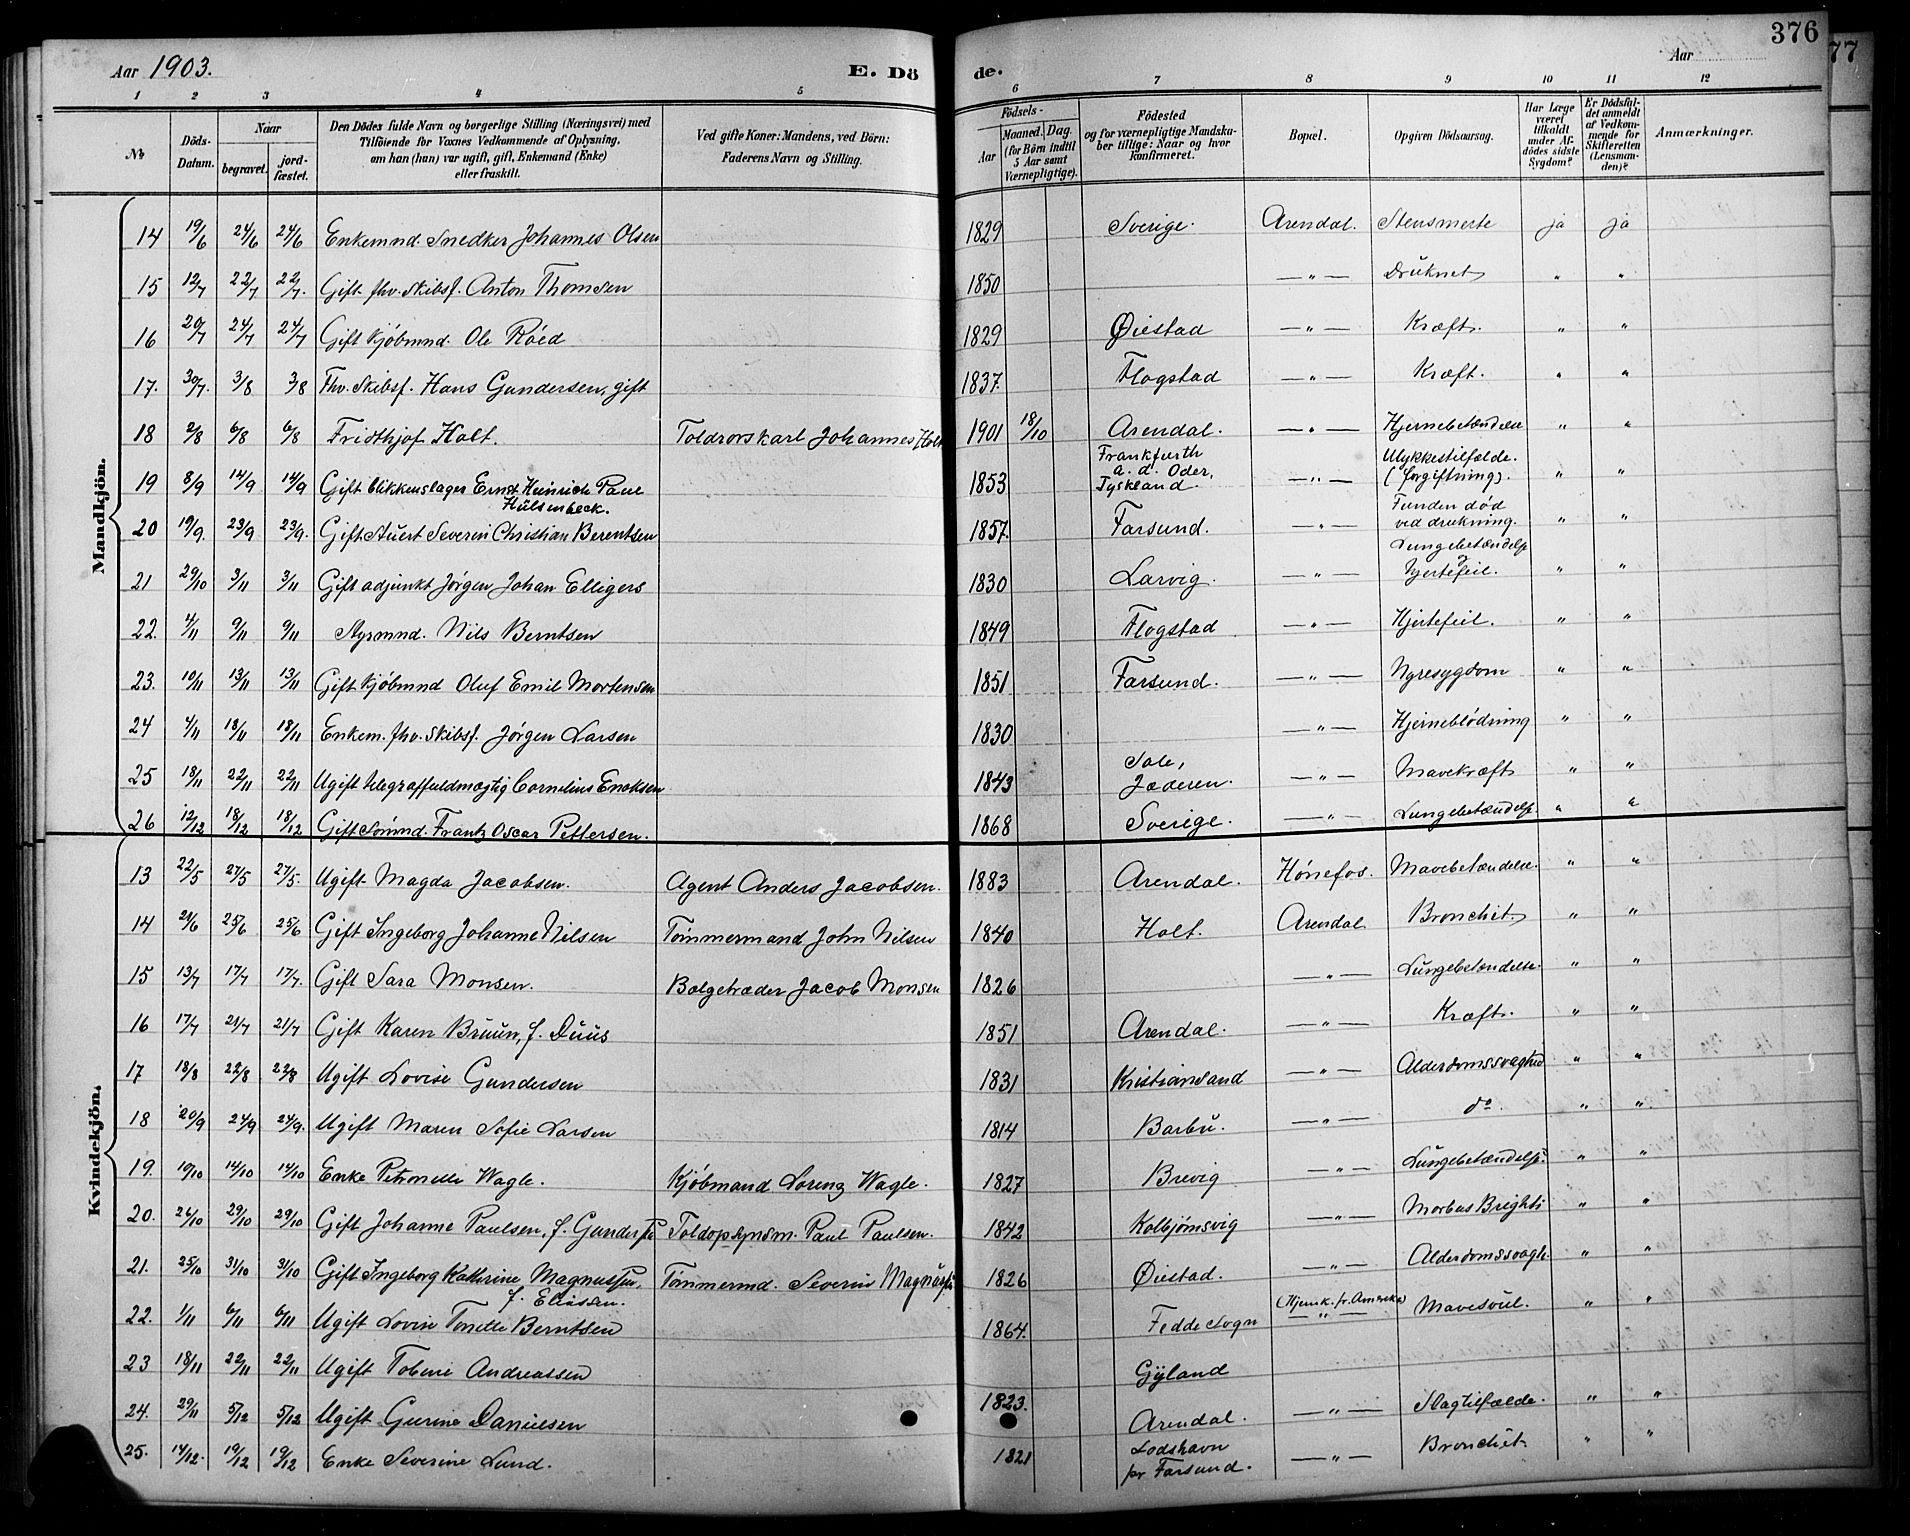 Aar 1903.
E. Dö
de.
Aar
376
77
1 2 3 4 5 6 7 8 9 10 11 12
No
Döds-Datum.
Naar
begravet.
jord-fæstet.
Den Dödes fulde Navn og borgerlige Stilling (Næringsvei) med
Tilföiende for Voxnes Vedkommende af Oplysning,
om han (hun) var ugift, gift, Enkemand (Enke)
eller fraskilt.
Ved gifte Koner: Mandens, ved Börn:
Faderens Navn og Stilling.
Födsels-
Aar
Maaned. Dag.
(for Börn indtil
5 Aar samt
Værnepligtige).
Födested
og for værnepligtige Mandska-
ber tillige: Naar og hvor
konfirmeret.
Bopæl.
Opgiven Dödsaarsag.
Har Læge
været
tilkaldt
under Af-
dödes sidste
Sygdom?
Er Dödsfal-
det anmeldt
af Vedkom-
mende for
Skifteretten
(Lensman-
den)?
Anmærkninger.
Mandkjön.
14 19/6 24/6 24/6 Enkemnd. Snedker Johannes Olsen 1829 Sverige. Arendal. Stensmerte ja ja
15 12/7 22/7 22/7. Gift fhv. Skibsf. Anton Thomsen 1850 —"— Druknet " "
16 20/7 24/7 24/7 Gift Kjøbmnd. Ole Röed 1829 Øiestad —"— Kræft. " "
17. 30/7. 3/8 3/8 Fhv. Skibsf. Hans Gundersen, gift 1837. Flogstad —"— Kræft. " "
18 2/8 6/8 6/8 Fridthjof Holt. Toldrorskarl Johannes Holt 1901 18/10 Arendal. —"— Hjernebetændelse " "
19 8/9 14/9 14/9 Gift blikkenslager Ernst Heinrich Paul
Hülsenbeck. 1853 Frankfurth
a. d. Oder,
Tyskland. —"— Ulykkestilfælde.
(forgiftning). " "
20 19/9. 23/9 23/9. Gift Stuert Severin Christian Berentsen 1857. Farsund. —"— Funden død
ved drukning. " "
21 29/10 3/11 3/11 Gift adjunkt Jörgen Johan Elligers 1830 Larvig. —"— Lungebetændelse
Hjertefeil. " "
22. 4/11 9/11 9/11 Styrmnd. Nils Berntsen 1849 Flogstad —"— Hjertefeil. " "
23. 10/11 13/11 13/11 Gift Kjöbmnd Oluf Emil Mortensen 1851 Farsund. —"— Nyresygdom " "
24 4/11 18/11 18/11 Enkem. fhv. Skibsf. Jörgen Larsen 1830 —"— Hjerneblödning " "
25 18/11 22/11 22/11 Ugift telegraffuldmægtig Cornelius Enoksen 1843 Sole,
Jæderen. —"— Mavekræft " "
26 12/12 18/12 18/12 Gift Sömnd. Frantz Oscar Pettersen. 1868 Sverige. —"— Lungebetændelse " "
Kvindekjön.
13 22/5 27/5 27/5. Ugift Magda Jacobsen. Agent Anders Jacobsen. 1883 Arendal. Hønefos. Mavebetændelse. " "
14 21/6 25/6 25/6 Gift Ingeborg Johanne Nilsen Tömmermand John Nilsen 1840 Holt. Arendal Bronchit " "
15 13/7 17/7 17/7. Gift Sara Monsen. Bælgetræder Jacob Monsen 1826 —"— Lungebetændelse. " "
16 17/7 21/7 21/7 Gift Karen Bruun, f. Duus 1851 Arendal. —"— Kræft. " "
17 18/8 22/8 22/8 Ugift Lovise Gundersen 1831 Kristiansand —"— Alderdomssvaghed " "
18 20/9 24/9 24/9. Ugift Maren Sofie Larsen 1814 Barbu. —"— do. " "
19. 10/10 14/10 14/10 Enke Petronelle Wagle. Kjöbmand Lorenz Wagle. 1827 Brevig —"— Lungebetændelse. " "
20. 26/10 29/10 29/10 Gift Johanne Paulsen, f. Gundersen Toldopsynsm. Paul Paulsen. 1842 Kolbjørnsvig —"— Morbus Brighti " "
21. 25/10 31/10 31/10 Gift Ingeborg Kathrine Magnussen,
f. Eliassen. Tømmermd. Severin Magnussen 1826 Øiestad. —"— Alderdomssvagh. " "
22. 1/11 6/11 6/11 Ugift Lovise Tonette Berntsen 1864. Fedde Sogn (Hjemk. fr. Amerika)
—"— Mavesvul. " "
23 18/11 22/11 22/11 Ugift Tobine Andreassen Gyland
24. 29/11 5/12 5/12 Ugift Gurine Danielsen 1823. Arendal. —"— Slagtilfælde. " "
25. 14/12. 19/12 19/12 Enke Severine Lund. 1821 Lodshavn
pr Farsund. —"— Bronchit " "